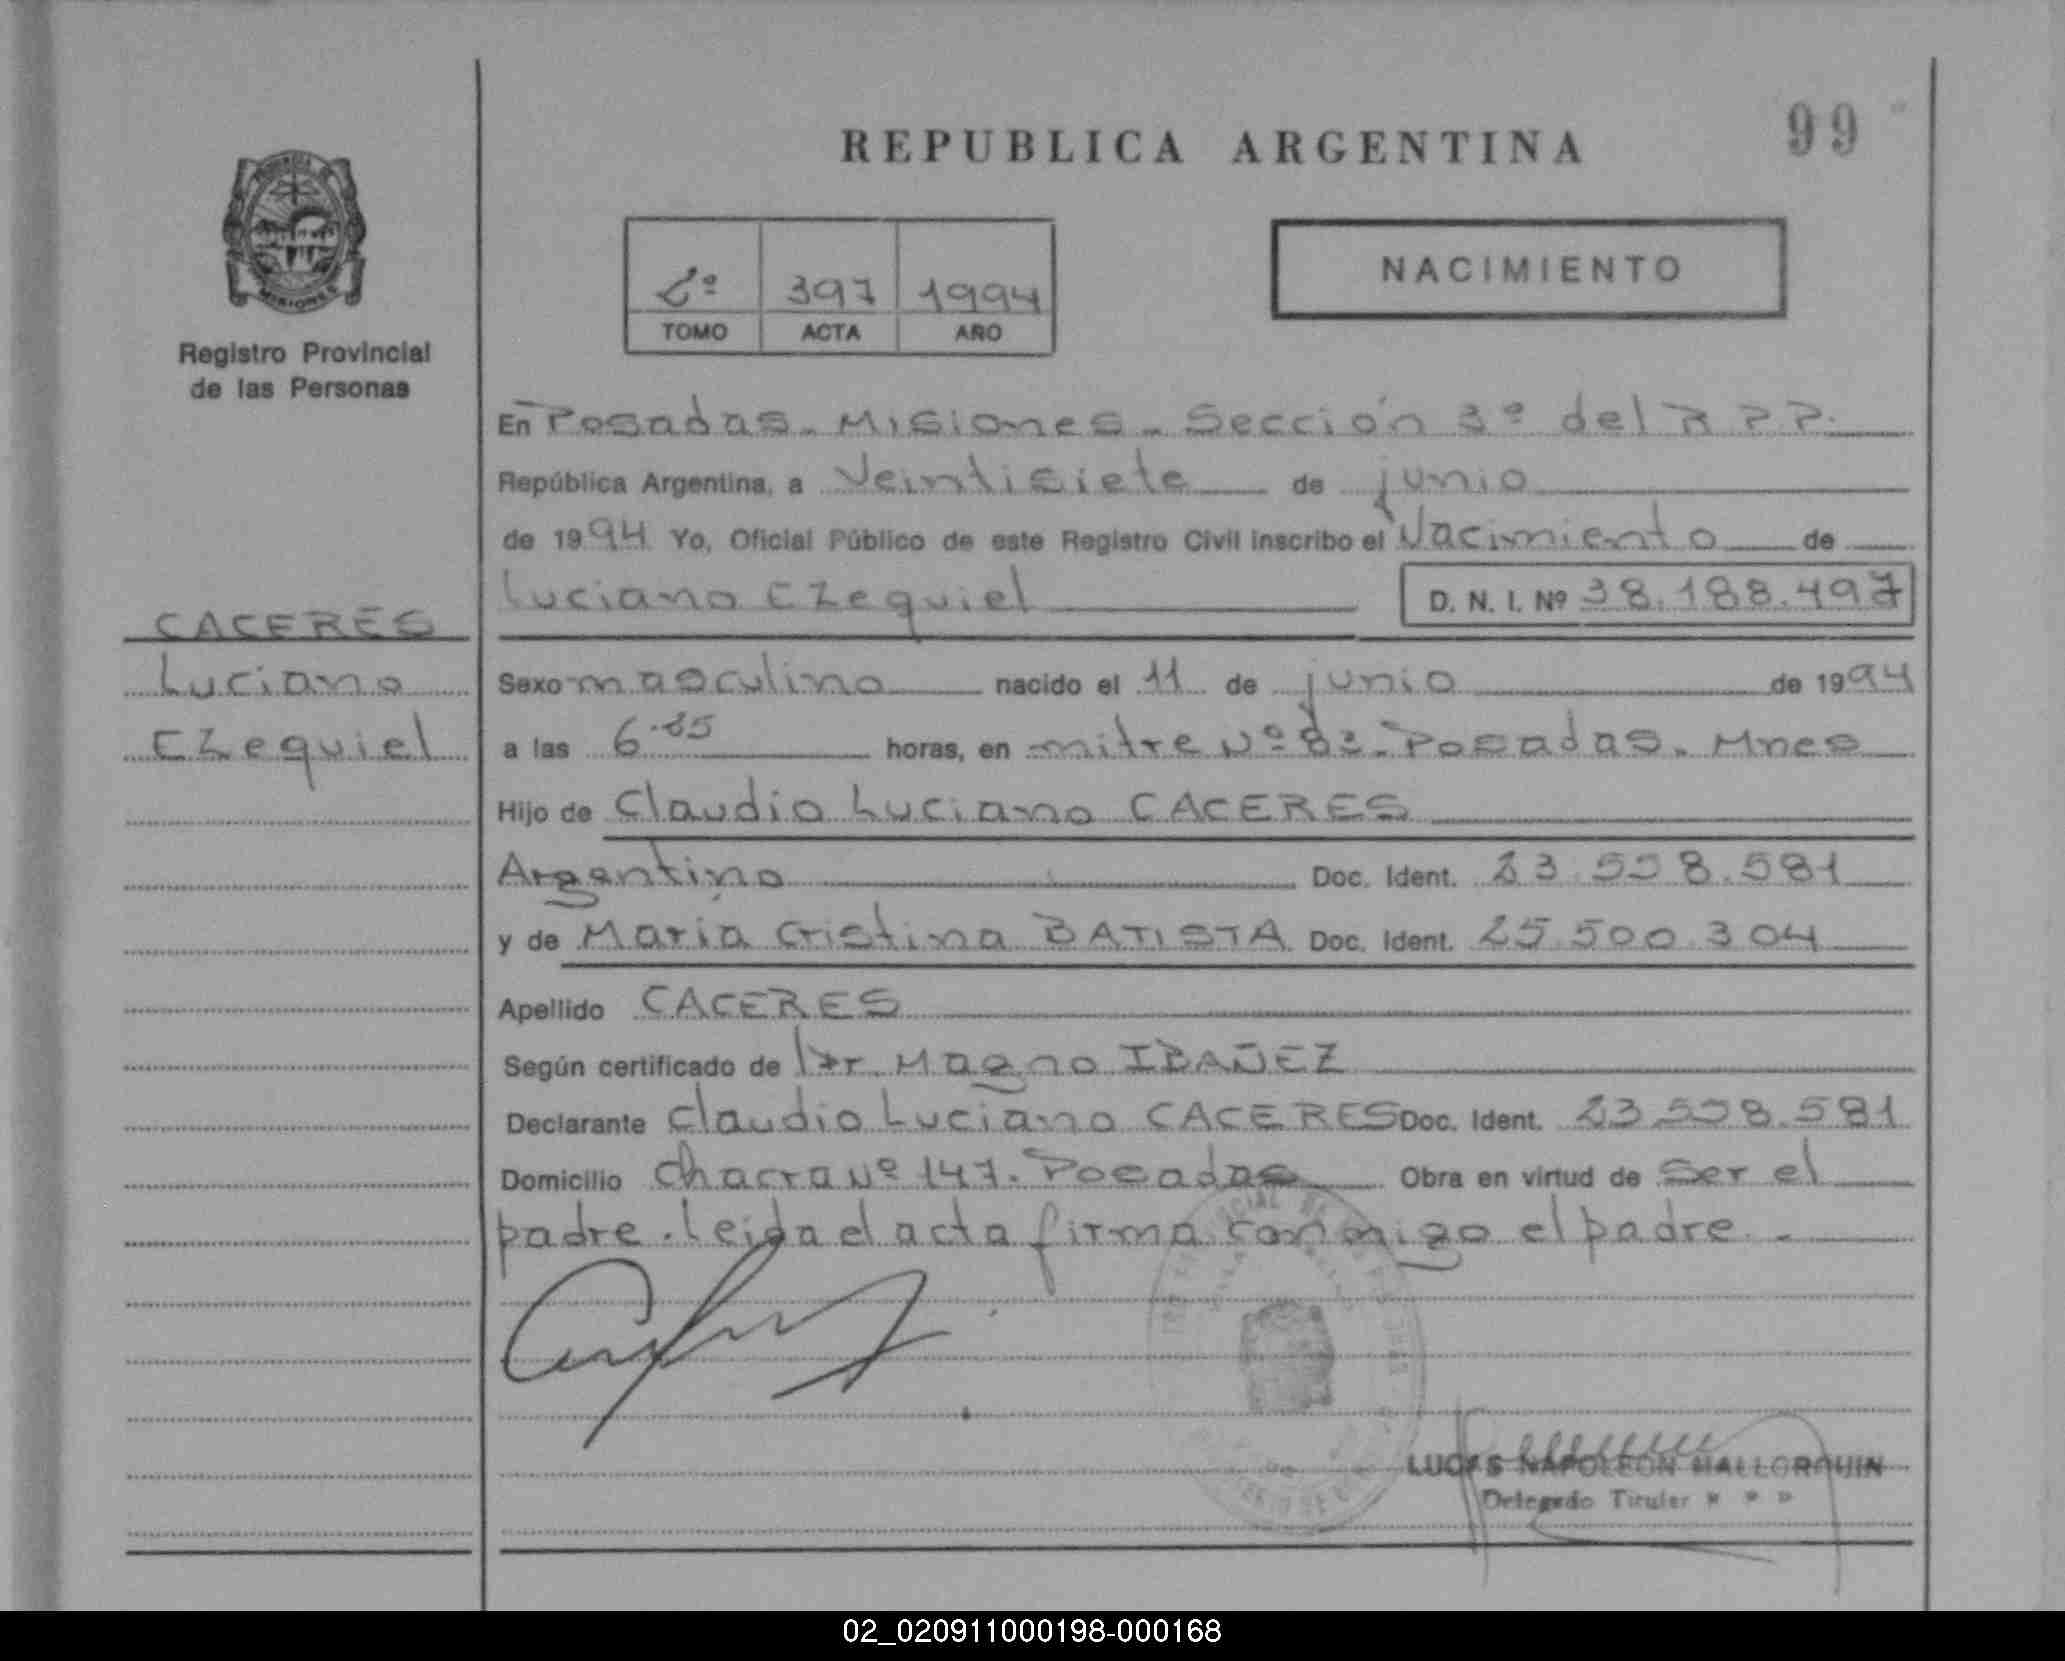 REPUBLICA ARGENTINA
99
2º 397 1994
TOMO ACTA AÑO
NACIMIENTO
MISIONES
Registro Provincial
de las Personas
En Posadas - Misiones - Sección 3º del R P P.
República Argentina, a Veintisiete de junio
de 1994 Yo, Oficial Público de este Registro Civil inscribo el Nacimiento de
Luciano Ezequiel D. N. I. Nº 38.188.497
CACERES
Luciano
Ezequiel
Sexo masculino nacido el 11 de junio de 1994
a las horas, en mitre Nº Posadas - Mnes
Hijo de Claudio Luciano CACERES
Argentino Doc. Ident. 23.558.581
y de Maria Cristina BATISTA Doc. Ident. 25.500.304
Apellido CACERES
Según certificado de Dr. Magno IBAÑEZ
Declarante Claudio Luciano CACERES Doc. Ident. 23.558.581
Domicilio Chacra Nº 147. Posadas Obra en virtud de Ser el
padre. leida el acta firma conmigo el padre. -
LUCAS NAPOLEON MALLORQUIN
Delegado Titular
02_020911000198-000168